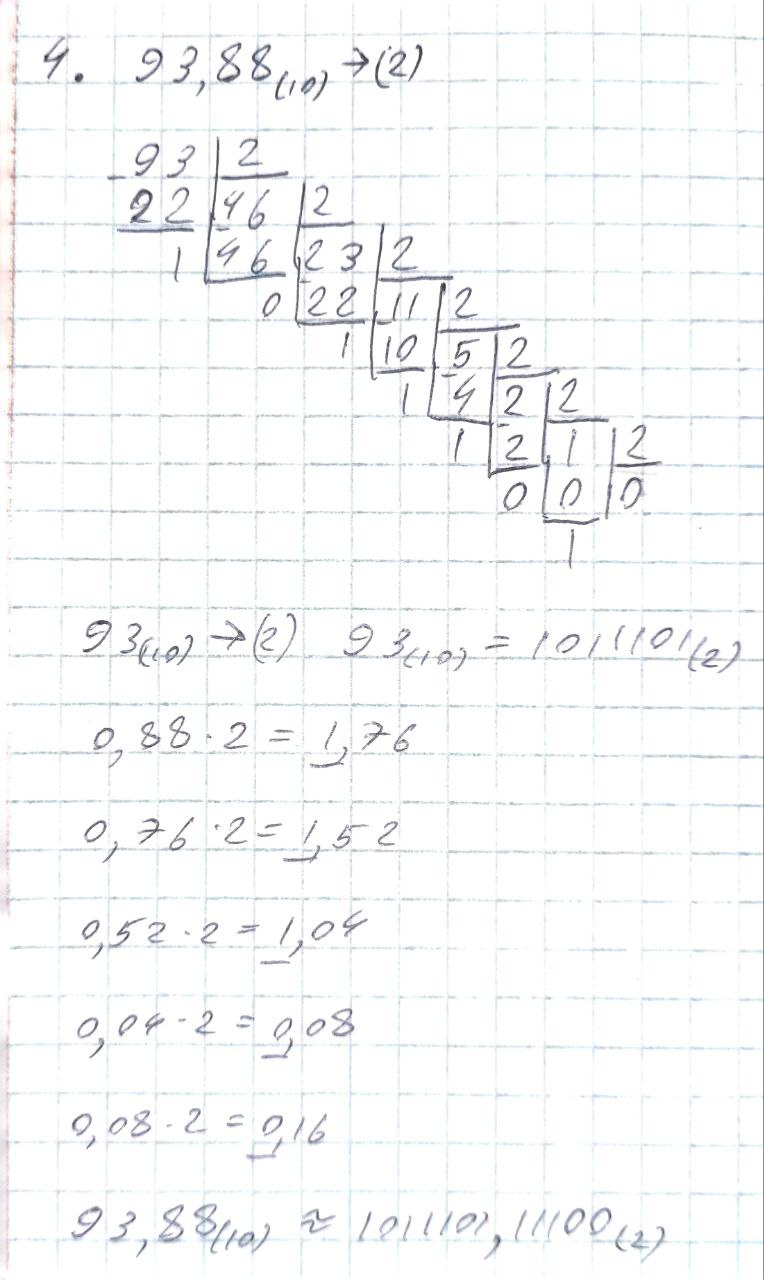 4. 93,88(10) → (2)
-93 | 2
92 | 46 | 2
1 | 46 | 23 | 2
0 | 22 | 11 | 2
1 | 10 | 5 | 2
1 | 4 | 2 | 2
1 | 2 | 1 | 2
0 | 0 | 0
1
93(10) → (2) 93(10) = 1011101(2)
0,88 · 2 = 1,76
0,76 · 2 = 1,52
0,52 · 2 = 1,04
0,04 · 2 = 0,08
0,08 · 2 = 0,16
93,88(10) ≈ 1011101,11100(2)